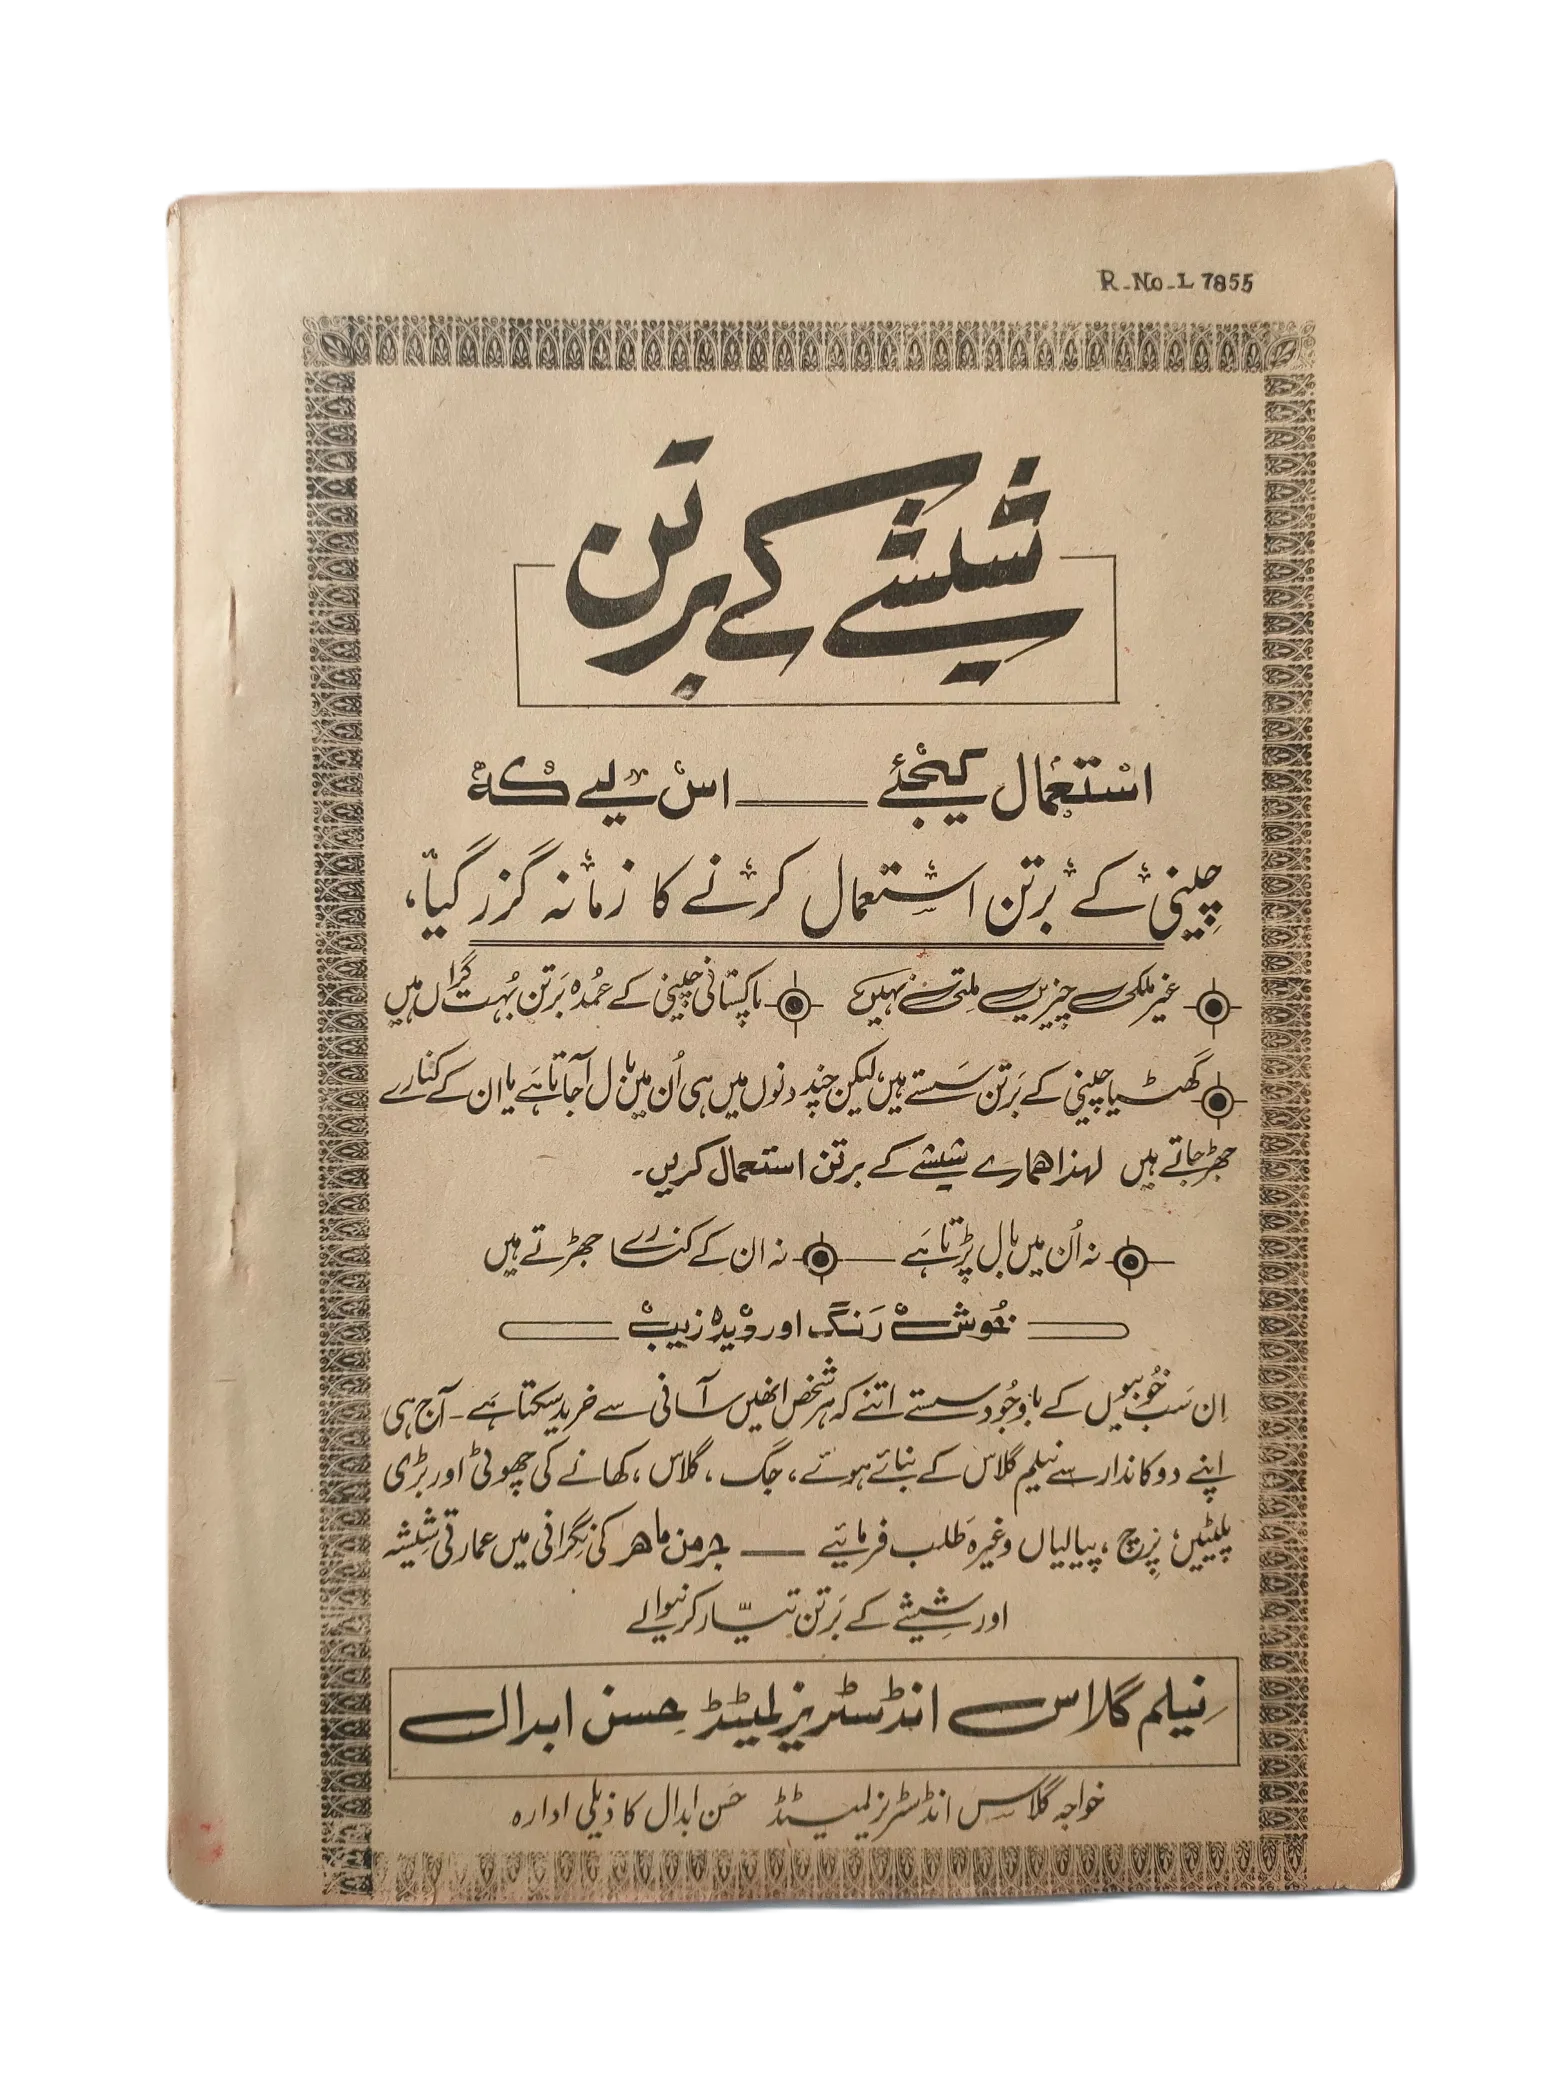 R-No-L 7855
شیشے کے برتن
استعمال کیجئے ——— اس لیے کہ
چینی کے برتن استعمال کرنے کا زمانہ گزر گیا،
غیر ملکی چیزیں ملتی نہیں پاکستانی چینی کے عُمدہ بَرتن بُہت گراں ہیں
گھٹیا چینی کے بَرتن سَستے ہیں، لیکن چند دنوں میں ہی اُن میں بال آجاتا ہَے یا ان کے کنارے
جھڑ جاتے ہیں لہذا ہمارے شیشے کے برتن استعمال کریں۔
نہ اُن میں بال پڑتا ہَے — نہ ان کے کنارے جھڑتے ہیں
خُوش رَنگ اور دیدہ زیب
اِن سَب خُوبیوں کے باوجُود سستے اتنے کہ ہر شخص انھیں آسانی سے خرید سکتا ہَے۔ آج ہی
اپنے دوکاندار سے نیلم گلاس کے بنائے ہوئے، جگ، گلاس، کھانے کی چھوٹی اور بڑی
پلیٹیں، پِرچ، پیالیاں وغیرہ طَلب فرمائیے —— جرمن ماہر کی نِگرانی میں عمارتی شِیشہ
اور شِیشے کے بَرتن تیّار کرنیوالے
نِیلم گلاس انڈسٹریز لمیٹڈ حِسن ابدال
خواجہ گلاس انڈسٹریز لمیٹڈ حَسن ابدال کا ذیلی ادارہ